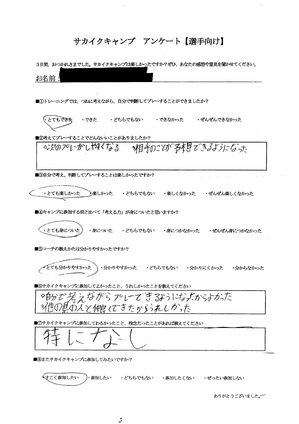 サカイクキャンプ　アンケート【選手向け】
3日間、おつかれさまでした。サカイクキャンプは楽しかったですか？ぜひ、あなたの感想や意見を聞かせてください。
お名前：
■①トレーニングでは、つねに考えながら、自分で判断してプレーすることができましたか？
・とてもできた　・できた　・どちらでもない　・できなかった　・ぜんぜんできなかった
■②考えてプレーすることでどんないいことがありましたか？
次のプレーがしやすくなる　相手のことが予想できるようになった
■③自分で考え、判断してプレーすることは楽しかったですか？
・とても楽しかった　・楽しかった　・どちらでもない　・楽しくなかった　・ぜんぜん楽しくなかった
■④キャンプに参加する前と比べて「考える力」が身についたと思いますか？
・とても身についた　・身についた　・どちらでもない　・身につかなかった　・ぜんぜん身につかなかった
■⑤コーチの教えかたは分かりやすかったですか？
・とても分かりやすかった　・分かりやすかった　・どちらでもない　・分かりにくかった　・分からなかった
■⑥サカイクキャンプに参加して良かったこと、うれしかったことを教えてください
・自分で考えながらプレーできるようになったからよかった
・他の県の人と仲良くできたからうれしかった
■⑦サカイクキャンプに参加してわるかったこと、残念だったことがあれば教えてください
特になし
■⑧またサカイクキャンプに参加してみたいですか？
・すごく参加したい　・参加したい　・どちらでもない　・参加したくない　・ぜったい参加しない
ありがとうございました。
5